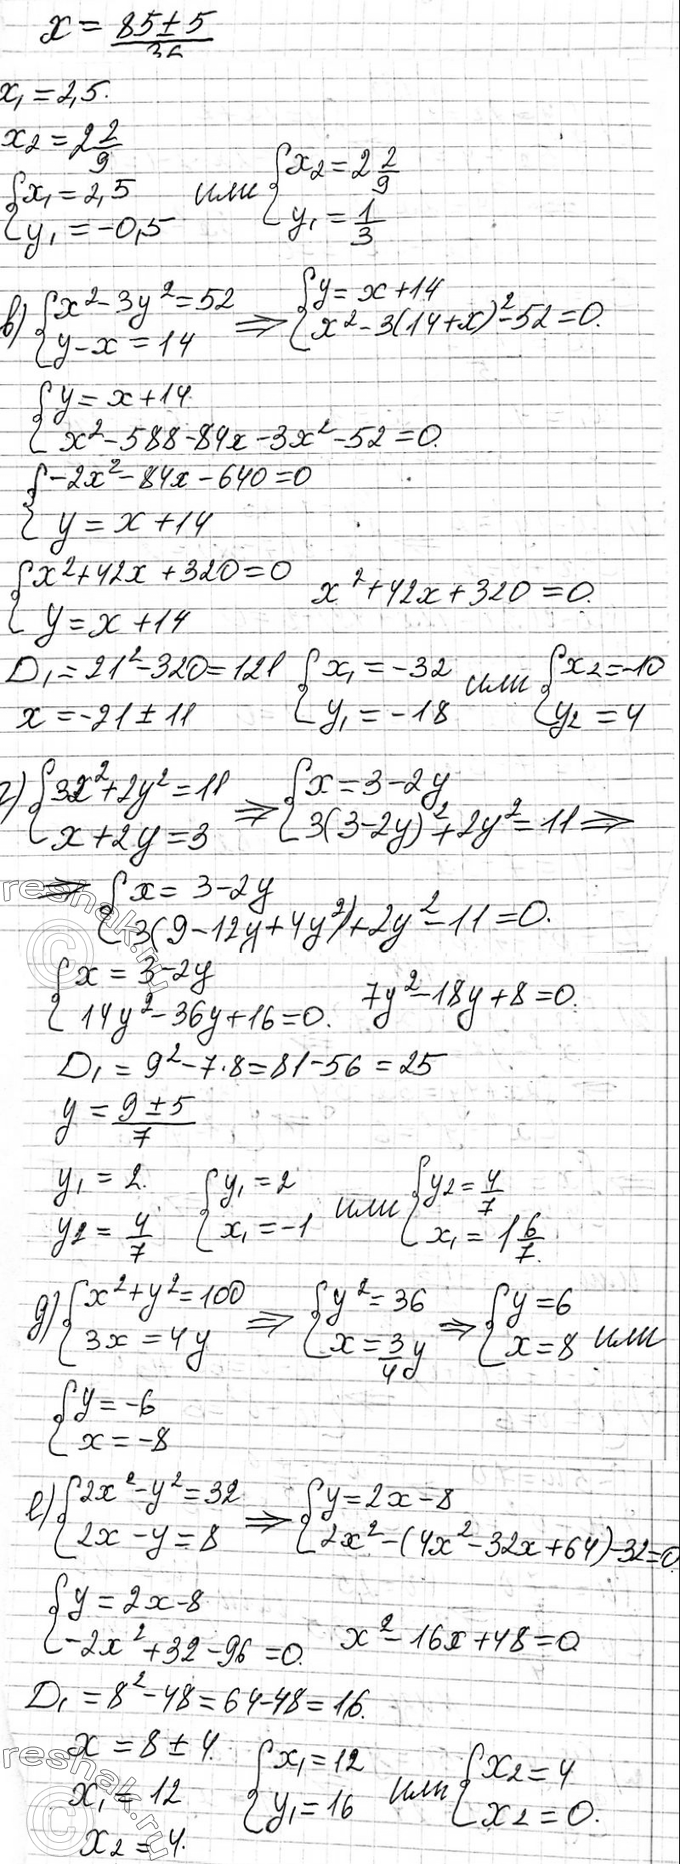 x = (85 ± 5)/36
x₁ = 2,5.
x₂ = 2 2/9
{ x₁ = 2,5 или { x₂ = 2 2/9
{ y₁ = -0,5 { y₁ = 1/3
в) { x² - 3y² = 52 ⇒ { y = x + 14
{ y - x = 14 { x² - 3(14 + x)² - 52 = 0.
{ y = x + 14.
{ x² - 588 - 84x - 3x² - 52 = 0.
{ -2x² - 84x - 640 = 0
{ y = x + 14
{ x² + 42x + 320 = 0 x² + 42x + 320 = 0.
{ y = x + 14
D₁ = 21² - 320 = 121 { x₁ = -32 или { x₂ = -10
x = -21 ± 11 { y₁ = -18 { y₂ = 4
г) { 3x² + 2y² = 11 ⇒ { x = 3 - 2y
{ x + 2y = 3 { 3(3 - 2y)² + 2y² = 11 ⇒
⇒ { x = 3 - 2y
{ 3(9 - 12y + 4y²) + 2y² - 11 = 0.
{ x = 3 - 2y
{ 14y² - 36y + 16 = 0. 7y² - 18y + 8 = 0.
D₁ = 9² - 7·8 = 81 - 56 = 25
y = (9 ± 5)/7
y₁ = 2. { y₁ = 2 или { y₂ = 4/7
y₂ = 4/7 { x₁ = -1 { x₁ = 1 6/7.
д) { x² + y² = 100 ⇒ { y² = 36 ⇒ { y = 6
{ 3x = 4y { x = 3/4 y { x = 8 или
{ y = -6
{ x = -8
е) { 2x² - y² = 32 ⇒ { y = 2x - 8
{ 2x - y = 8 { 2x² - (4x² - 32x + 64) - 32 = 0
{ y = 2x - 8
{ -2x² + 32 - 96 = 0. x² - 16x + 48 = 0
D₁ = 8² - 48 = 64 - 48 = 16.
x = 8 ± 4.
x₁ = 12 { x₁ = 12 или { x₂ = 4
x₂ = 4. { y₁ = 16 { x₂ = 0.
reshak.ru
reshak.ru